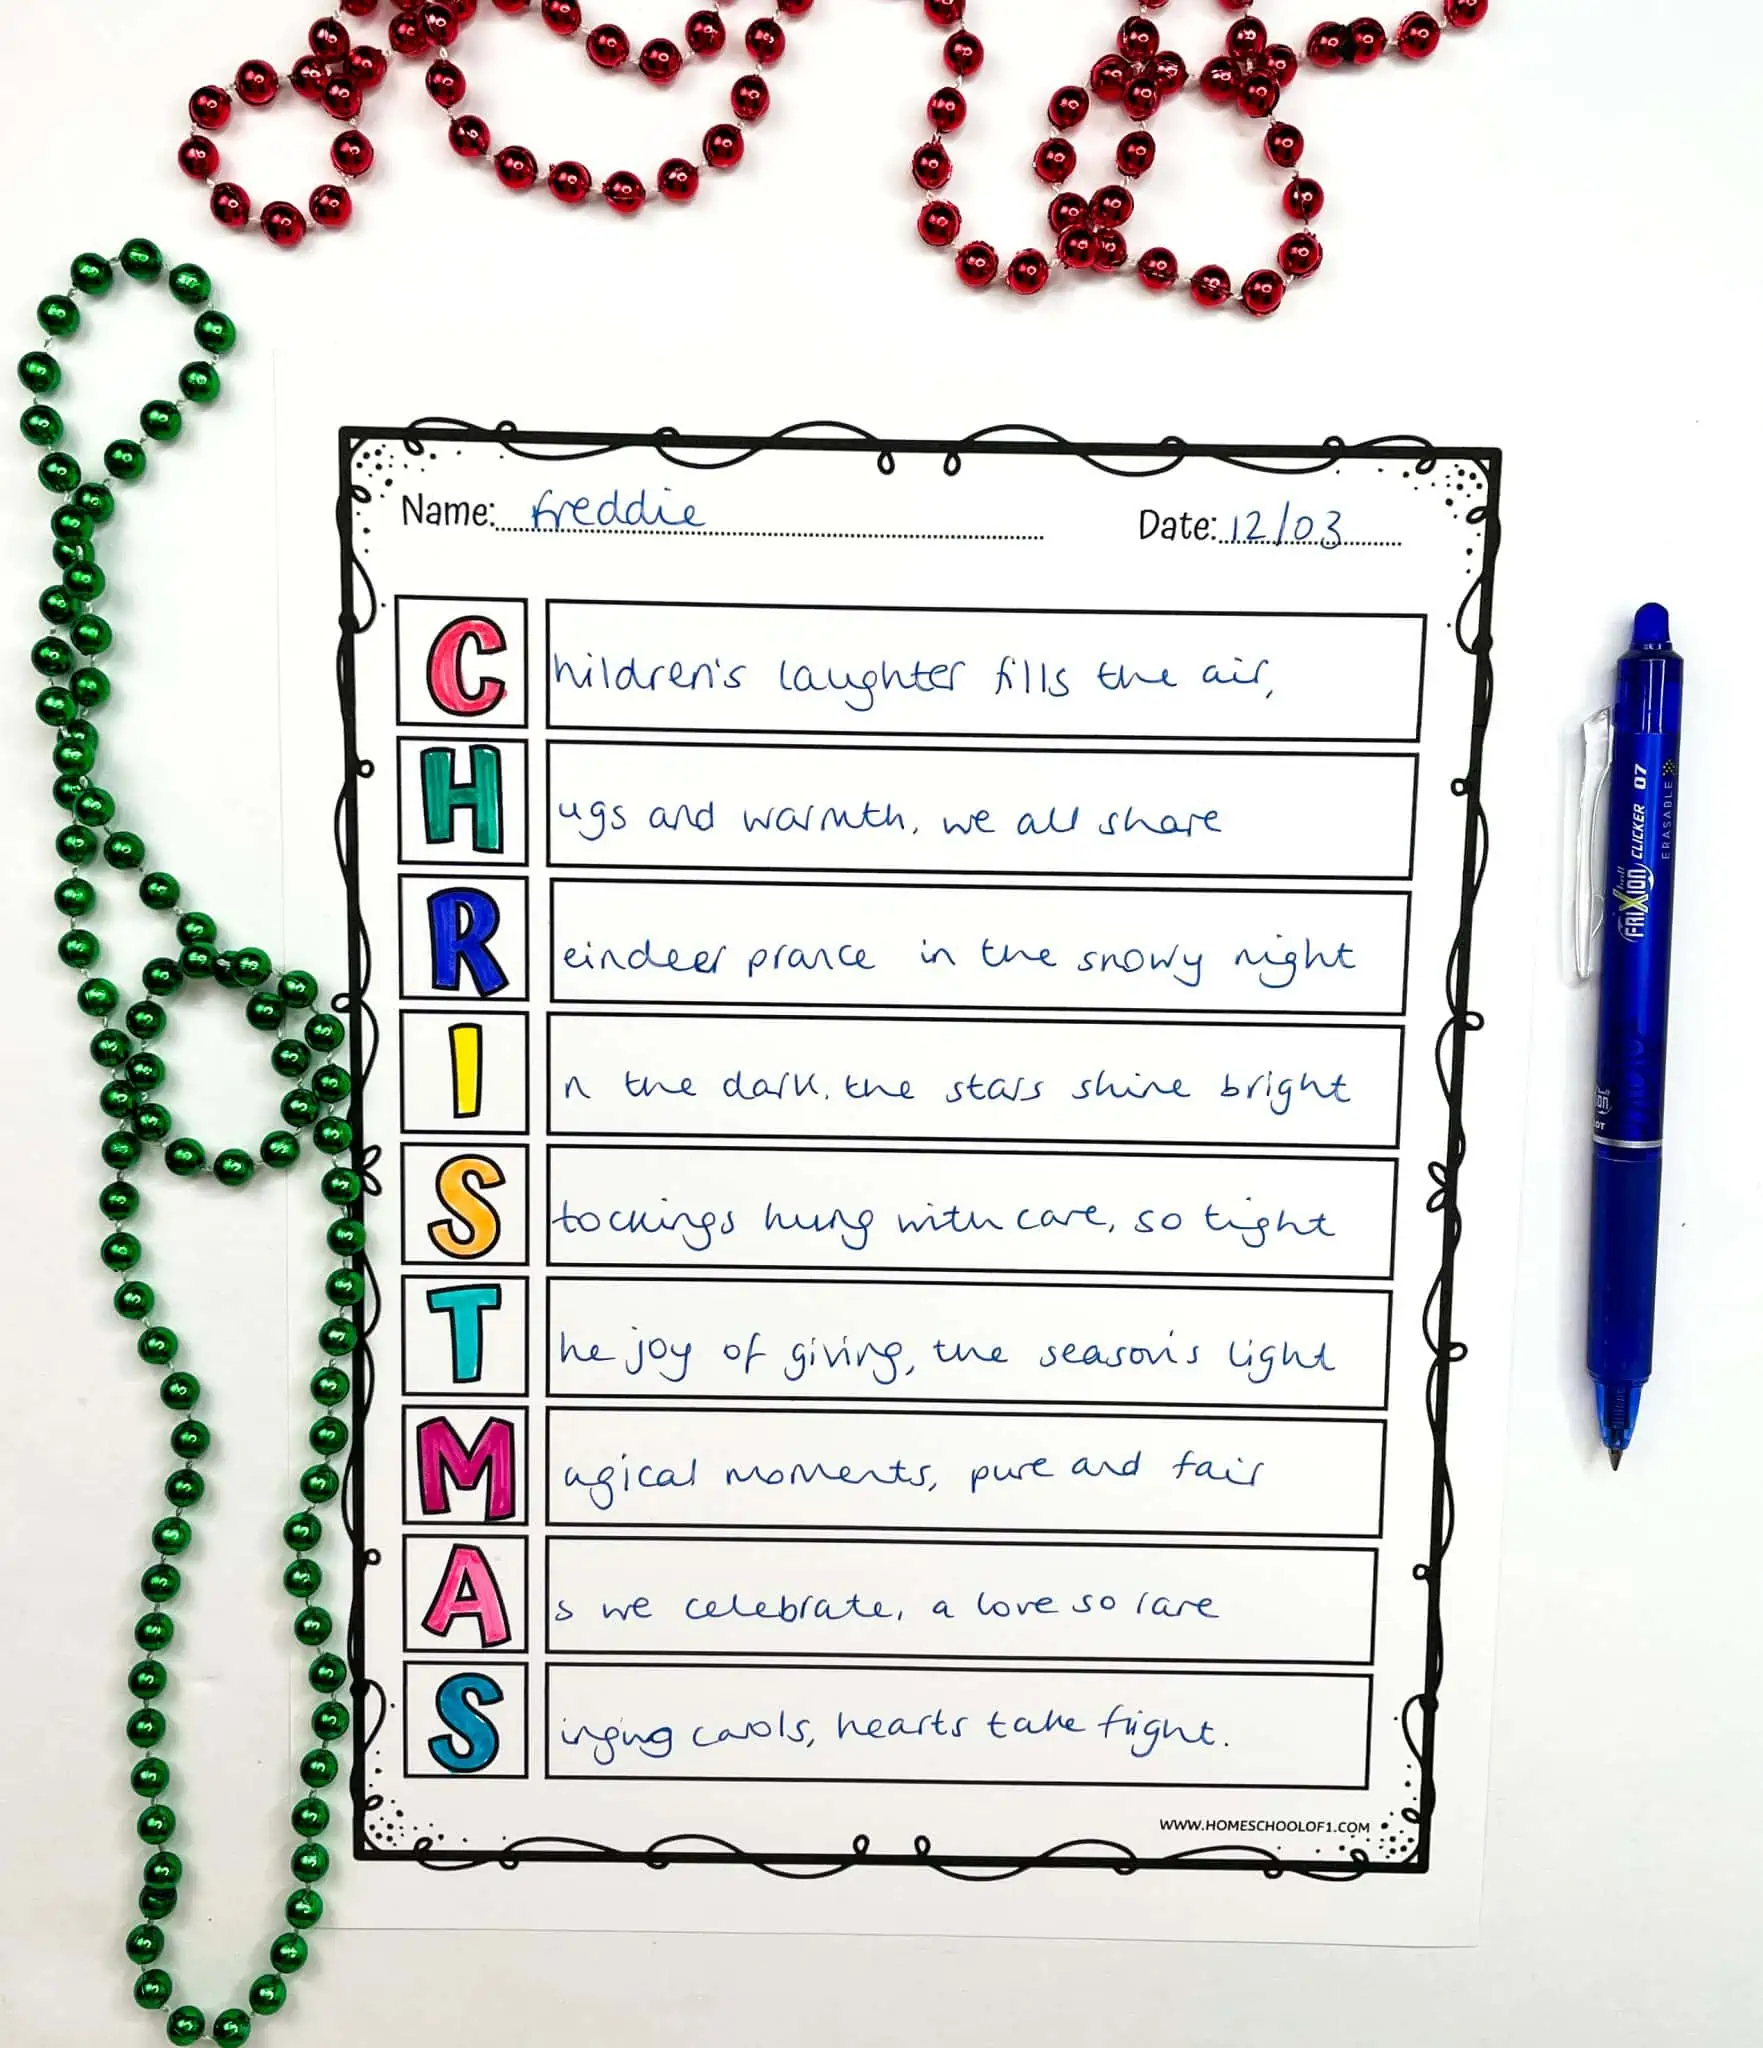 Name: Freddie Date: 12/03
Children's laughter fills the air,
Hugs and warmth, we all share
Reindeer prance in the snowy night
In the dark, the stars shine bright
Stockings hung with care, so tight
The joy of giving, the season's light
Magical moments, pure and fair
As we celebrate, a love so rare
Singing carols, hearts take flight.
WWW.HOMESCHOOLOF1.COM
FRIXION CLICKER 07
ERASABLE